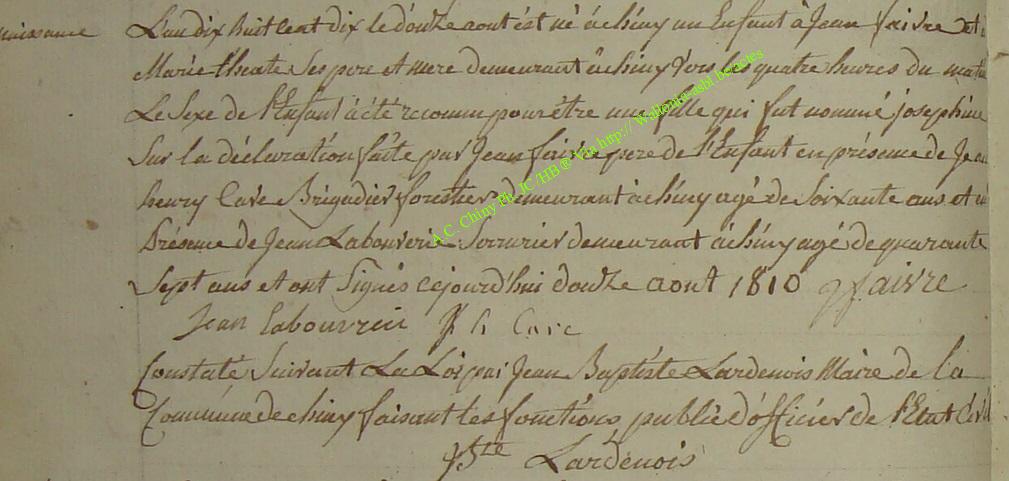 naissance L'an dix huit cent dix le douze aout est né à chiny un Enfant à Jean faivre et à
Marie theate Ses pere et mere demeurant à chiny vers les quatre heures du matin
Le Sexe de l'Enfant à été reconnu pour être une fille qui fut nommé josephine
Sur la déclaration faite par Jean faivre pere de l'Enfant en présence de Jean
henry Care Brigadier forestier demeurant à chiny agé de Soixante ans et en
Présence de Jean Labouverie Serrurier demeurant à chiny agé de quarante
Sept ans et ont Signés cejourd'hui douze aout 1810 J faivre
Jean Labouverie J h Care
Constaté Suivant La Loi par Jean Baptiste Lardenois Maire de la
Commune de chiny faisant les fonctions public d'officier de l'Etat Civil
J Bte Lardenois
A.C. Chiny Ph. JC /HB @ Via http:// Wallonia-asbl.be/actes